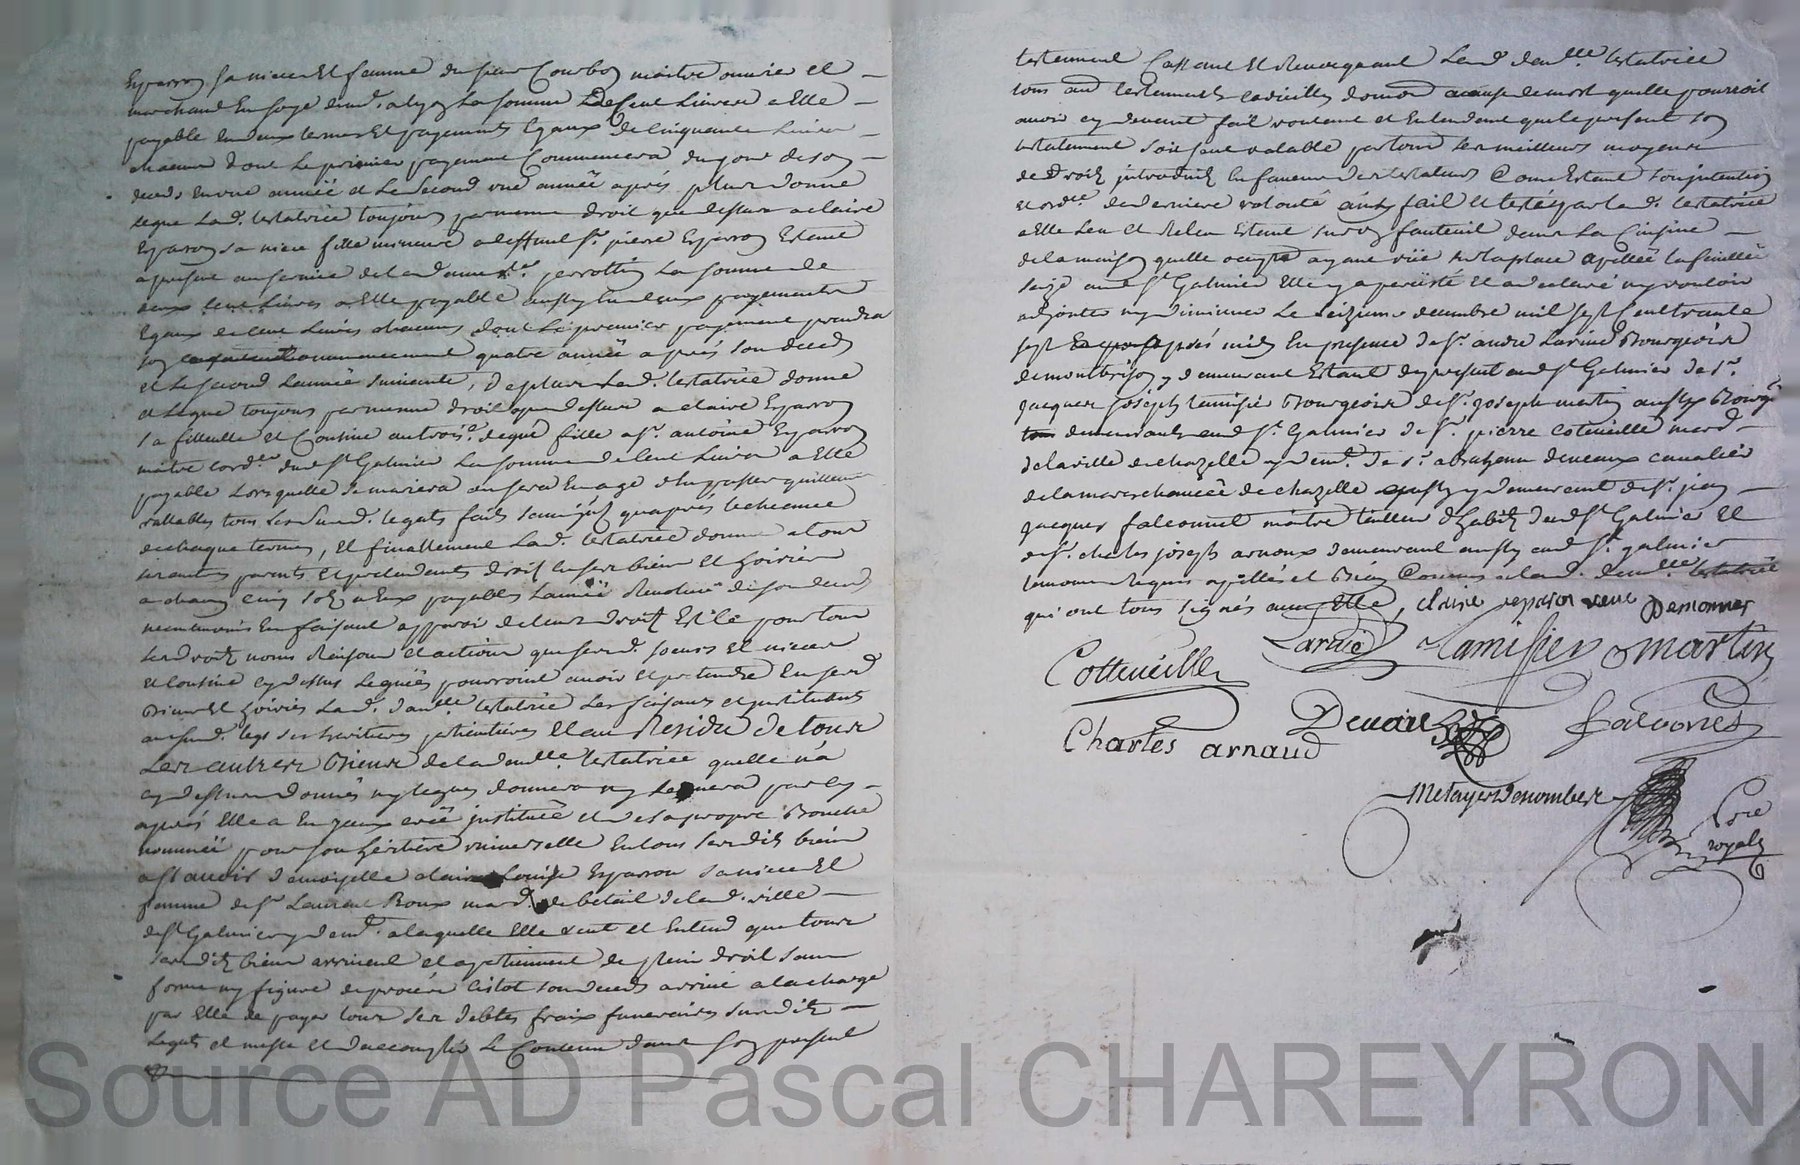 Esparron sa niece Et femme du sieur Courbon maitre ouvrier et
marchand En soye demt. a lyon La somme De Cent Livres a Elle
payable En deux termes Et payements Egaux de Cinquante Livres
chacun dont Le premier payement Commencera du jour de son
deceds En une année et Le second une année après, plus donne
legue Lad. testatrice toujours par meme droit que dessus a claire
Esparron sa niece fille mineure a deffunt Sr. pierre Esparron Estant
a present au service de perrottin La somme de
deux Cent Livres a Elle payable aussy En deux payements
Egaux de Cent Livres chacuns dont Le premier payement prendra
son commencement quatre année après son deceds
et Le second L'année suivante, de plus Lad. testatrice donne
et Legue toujours par meme droit que dessus a claire Esparron
sa filleulle et Cousine au trois.e degré fille a Sr. antoine Esparron
maitre cord.er dud St Galmier La somme de Cent Livres a Elle
payable Lors quelle se mariera ou sera En age d'En passer quittance
vallables tous Lesd. legats faits sans qu'après L'echeance
de chaque termes, Et finallement Lad. testatrice donne a tous
ses autres parents et pretendants droit En ses bien et hoirie
a chacun Cinq sols a Eux payables L'année Revolue de son deceds
neanmoins En faisant apparoir de leurs droits Et ce pour tous
Les droits noms Raisons et actions que sesd. soeurs et nieces
et Cousine cy dessus Leguées pourroient avoir et pretendre En sesd
Biens Et hoiries Lad. dam.lle testatrice Les faisant et instituant
ausd. legs ses heritieres particulieres Et au Residu de tous
Les autres Biens de lad demlle. testatrice quelle n'a
cy dessus donnés ny legues donnera ny Leguera par cy
après Elle a En jceux créé instituée et de sa propre Bouche
nommée pour son heritiere universelle En tous sesdits biens
assavoir damoiselle claire Louise Esparron sa niece Et
femme de Sr Laurent Roux mard. de betail de lad. ville
de St Galmier y demt. a laquelle Elle veut et Entend que tous
sesdits biens arrivent et apartiennent de plein droit sans
forme ny figure de procés sitot son deceds arrivé a la charge
par Elle de payer tous ses debtes fraix funeraires susdits
Legats et messe et d'accomplir Le Contenu dans son present
testament Cassant Et Revocquant Lad. dem.lle testatrice
tous autres testements codicilles donnation a cause de mort quelle pourroit
avoir cy devant fait voulant et Entendant que le present son
testatement soit seul valable par tous Les meilleurs moyens
de Droits introduits En faveur des testateurs Comme Estant son jntention
et ord.ce de derniere volonté ainsy fait et testé par lad. testatrice
a Elle Leu et Releu Estant sur son fauteuil dans La Cuisine
de la maison quelle occupe ayant vüe sur la place apellée la feuillée
seize aud St Galmier Elle y a persisté Et a declaré ny vouloir
adjouter ny diminuer Le seizieme decembre mil sept Cent trante
sept après midy En presence de Sr. andre Larive Bourgeois
de montbrison y demeurant Estant de present aud St Galmier de Sr.
jacques joseph tamisier Bourgeois de Sr. joseph martin aussy Bourgs
demeurants aud St. Galmier de Sr. pierre coteveille mard
de la ville de chazelle y demt. de Sr. abraham deveaux cavalier
de la mareschaucée de chazelle aussy y demeurant de Sr. jean
jacques falconnet maitre tailleur d'habits dud St Galmier Et
de Sr. charles joseph arnoux demeurant aussy aud St. galmier
temoins Requis apellés et Bien Connus a lad. demlle. testatrice
qui ont tous signés avec Elle, claire esparon veuve Demonner
Larive Tamisier Martin
Cotteveille
Devaux falconet
Charles arnaud
Metayer Denombret
Nre
royal
Source AD Pascal CHAREYRON